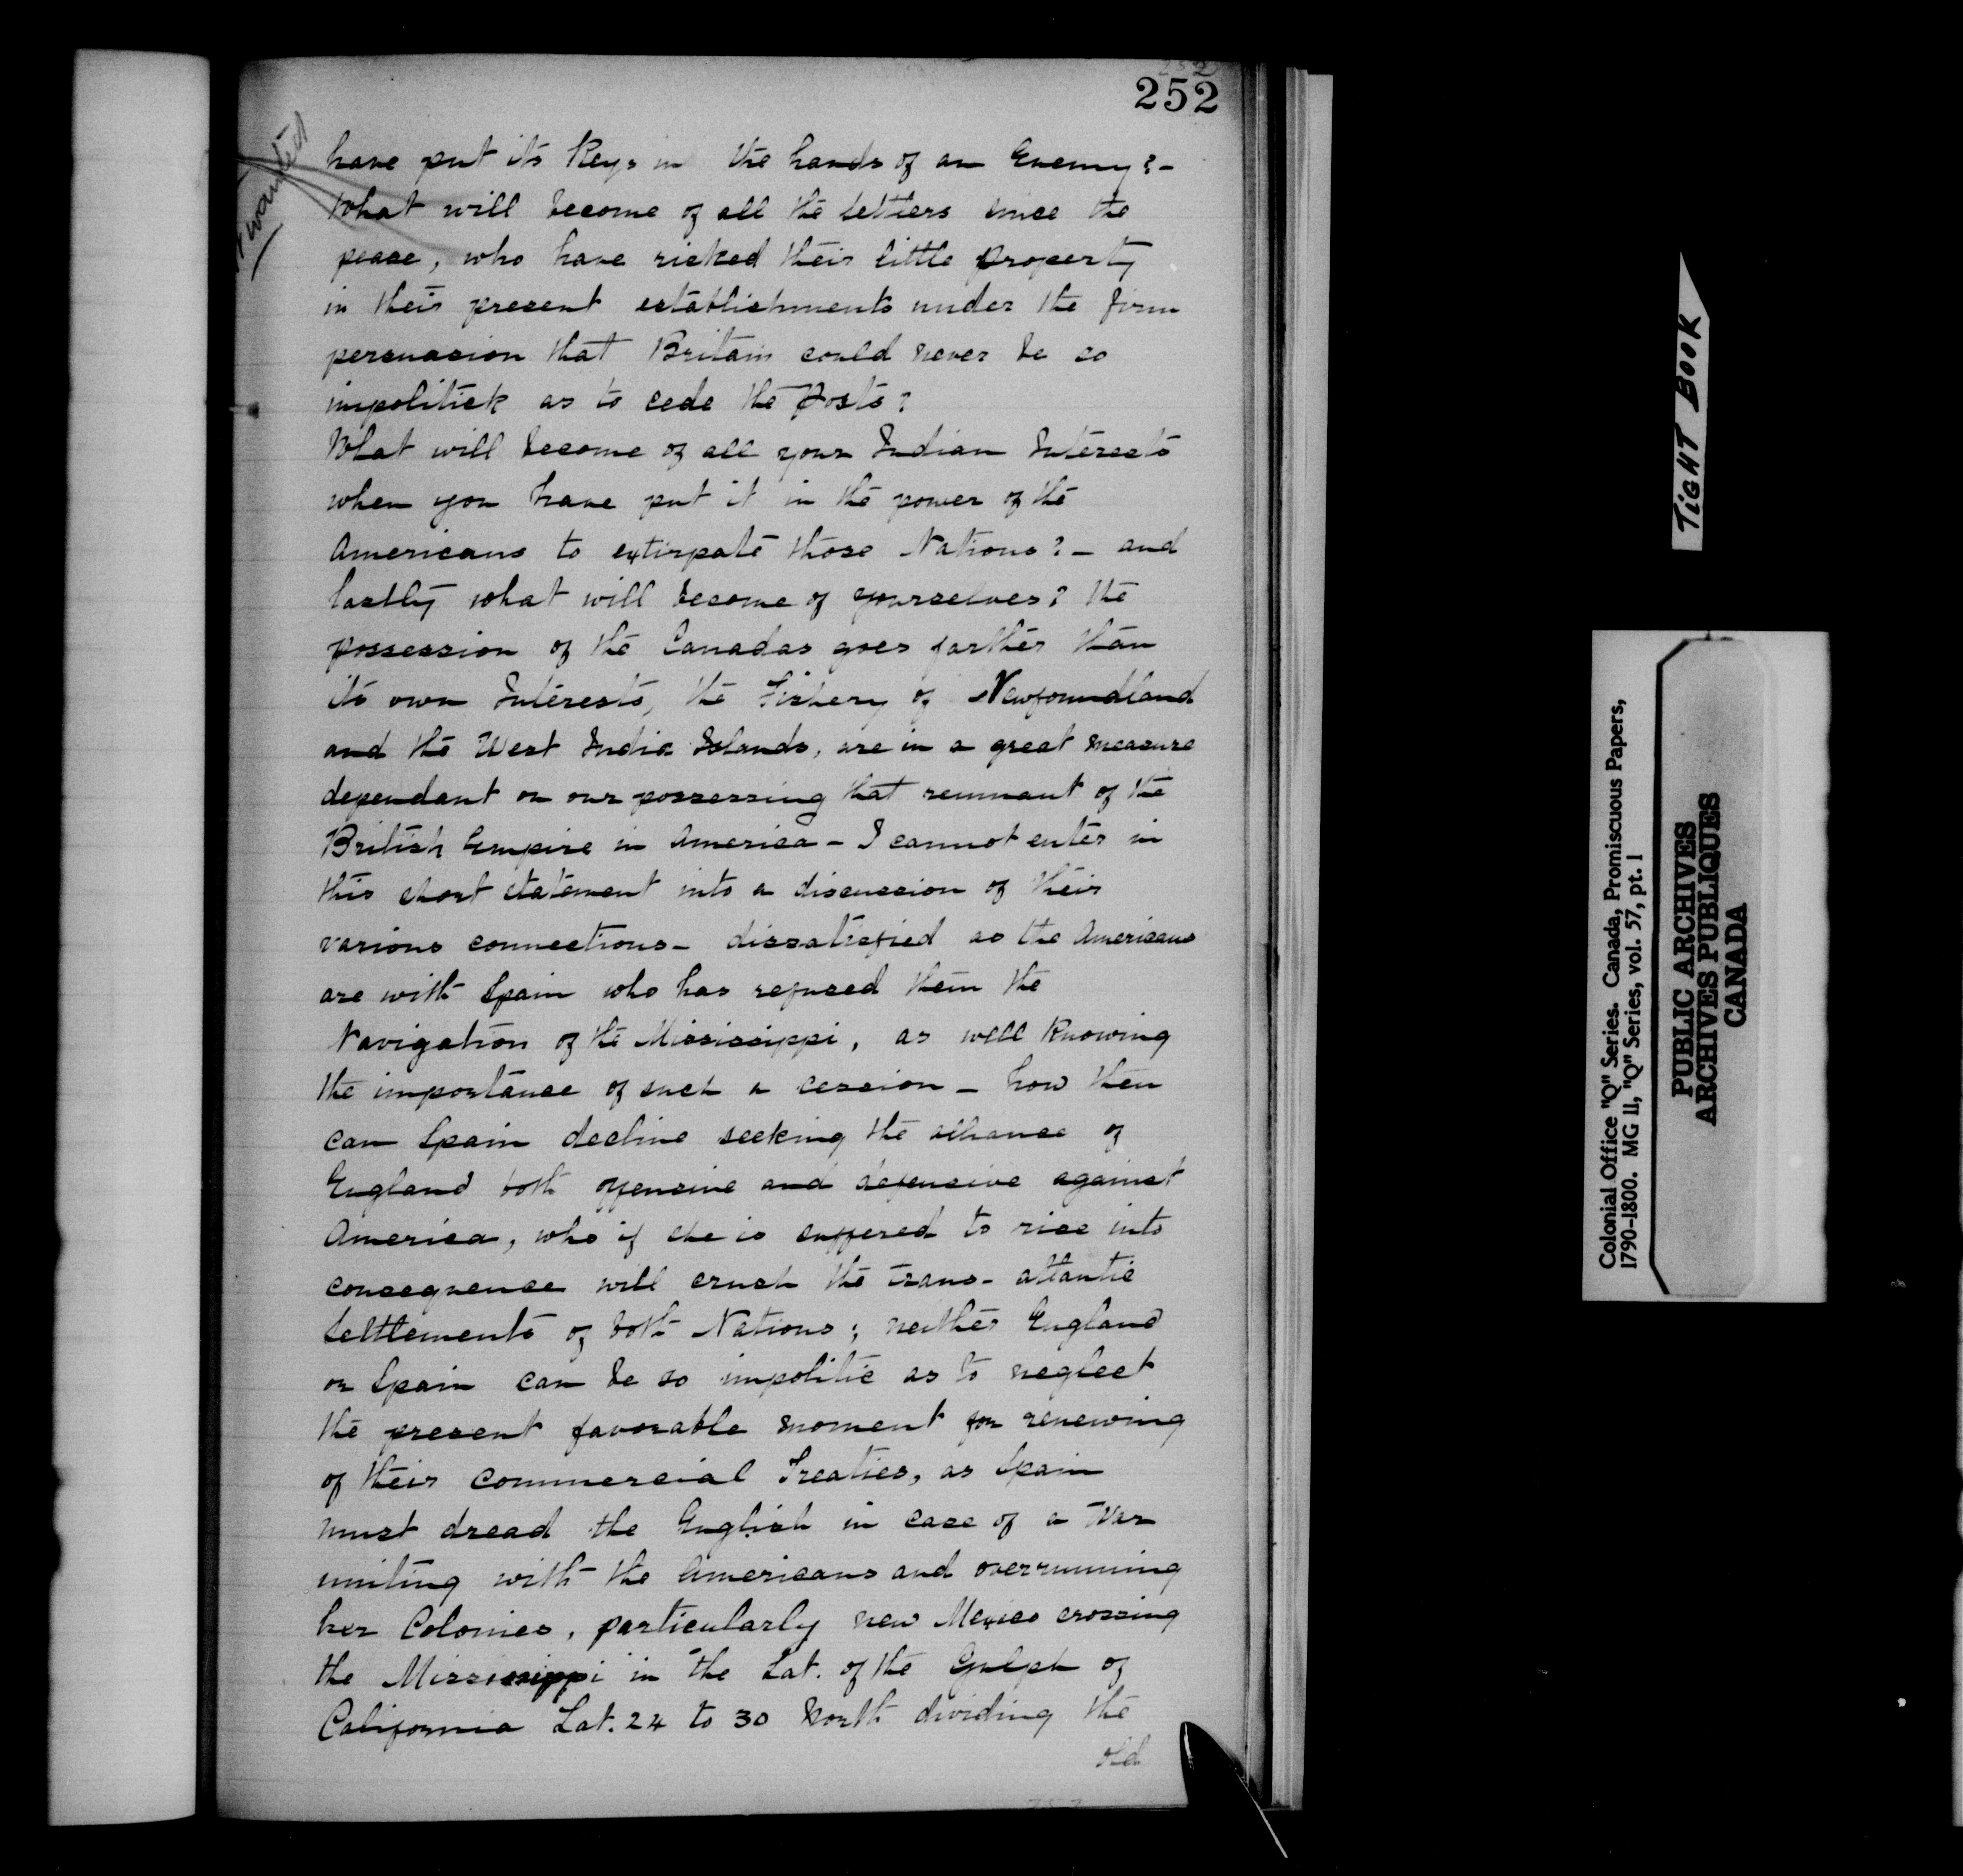 252
wanted
have put its Keys in the hands of an Enemy?-
What will become of all the settlers since the
peace, who have risked their little property
in their present establishments under the firm
persuasion that Britain could never be so
impolitick as to cede the Posts?
What will become of all your Indian Interests
when you have put it in the power of the
Americans to extirpate those Nations? - and
lastly what will become of yourselves? the
possession of the Canadas goes farther than
its own Interests, the Fishery of Newfoundland
and the West India Islands, are in a great measure
dependant on our possessing that remnant of the
British Empire in America - I cannot enter in
this short statement into a discussion of their
various connections - dissatisfied as the Americans
are with Spain who has refused them the
Navigation of the Mississippi, as well knowing
the importance of such a cession - how then
can Spain decline seeking the alliance of
England both offensive and defensive against
America, who if she is suffered to rise into
consequence will crush the trans-atlantic
Settlements of both Nations; neither England
or Spain can be so impolitic as to neglect
the present favorable moment for renewing
of their Commercial Treaties, as Spain
must dread the English in case of a War
uniting with the Americans and overrunning
her Colonies, particularly new Mexico crossing
the Mississippi in the Lat. of the Gulph of
California Lat. 24 to 30 North dividing the
old
TIGHT BOOK
Colonial Office "Q" Series. Canada, Promiscuous Papers,
1790-1800. MG 11, "Q" Series, vol. 57, pt. 1
PUBLIC ARCHIVES
ARCHIVES PUBLIQUES
CANADA